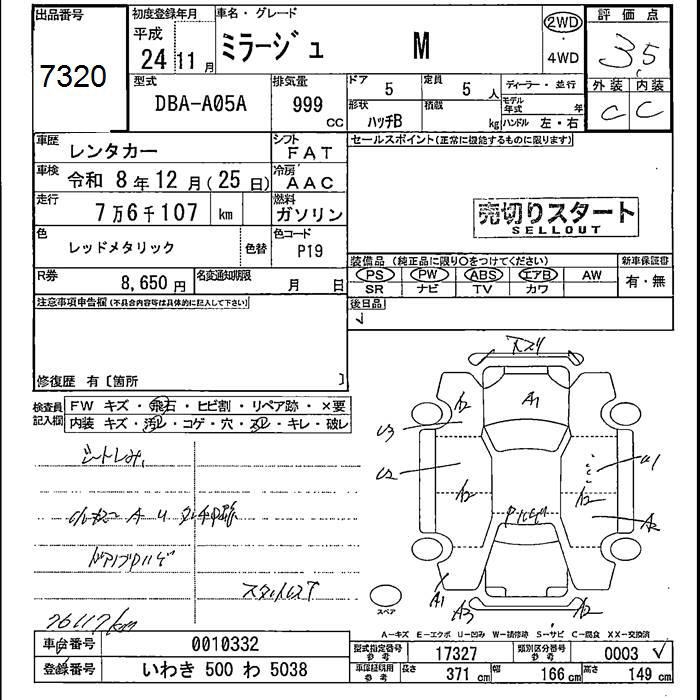 出品番号
7320
初度登録年月
平成
24 11 月
車名・グレード
ミラージュ M
2WD
4WD
評価点
3.5
外装 内装
C C
型式
DBA-A05A
排気量
999 CC
ドア
5
定員
5 人
形状
ハッチB
積載
kg
ディーラー・並行
モデル年式 年
ハンドル 左・右
車歴
レンタカー
シフト
FAT
車検
令和 8 年 12 月 (25 日)
冷房
AAC
走行
7 万 6 千 107 km
燃料
ガソリン
色
レッドメタリック
色替
色コード
P19
R券
8,650 円
名変通知期限
月 日
セールスポイント(正常に機能するものに限ります)
売切りスタート
SELLOUT
装備品(純正品に限り〇をつけてください)
新車保証書
PS PW ABS エアB AW
SR ナビ TV カワ
有・無
注意事項申告欄(不具合内容等は具体的に記入して下さい)
後日品
修復歴 有〔箇所 〕
検査員記入欄
FW キズ・飛石・ヒビ割・リペア跡・×要
内装 キズ・汚レ・コゲ・穴・スレ・キレ・破レ
シートしみ
76117km
A2
A1
U3
U2
A2
U1
A2
A2
A1
A3
A2
スペア
A-キズ E-エクボ U-凹み W-補修跡 S-サビ C-腐食 XX-交換済
車台番号
0010332
登録番号
いわき 500 わ 5038
型式指定番号
参考
17327
類別区分番号
参考
0003
車庫証明用
参考
長さ 371 cm 幅 166 cm 高さ 149 cm